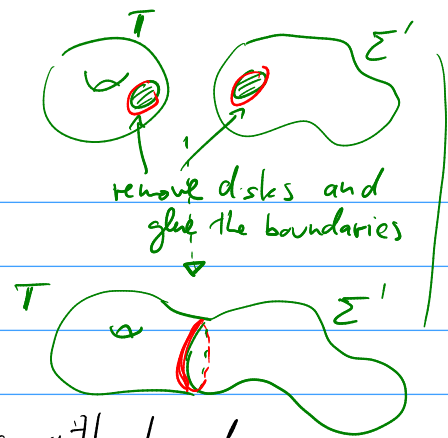 T Σ'
remove disks and
glue the boundaries
T Σ'